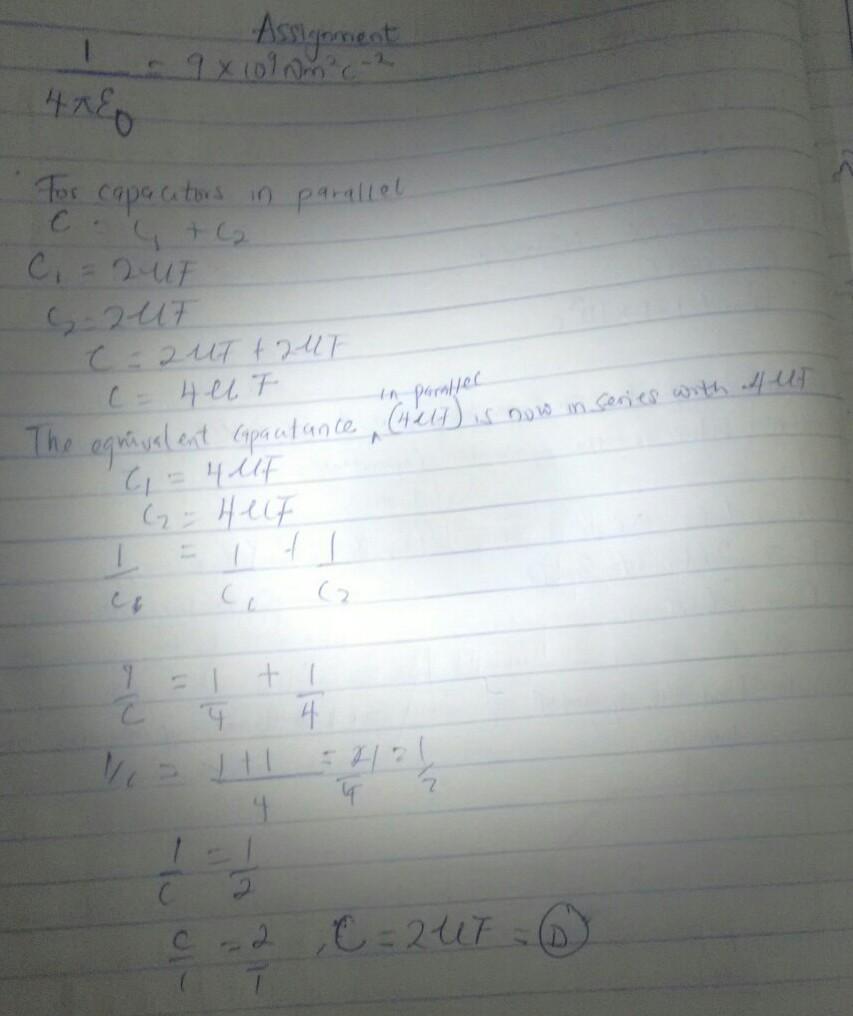 Assignment
1/4πε0 = 9 × 10⁹ Nm²C⁻²
For capacitors in parallel
C = C1 + C2
C1 = 2μF
C2 = 2μF
C = 2μF + 2μF
C = 4μF
The equivalent capacitance in parallel (4μF) is now in series with 4μF
C1 = 4μF
C2 = 4μF
1/C = 1/C1 + 1/C2
1/C = 1/4 + 1/4
1/C = 1+1/4 = 2/4 = 1/2
1/C = 1/2
C/1 = 2/1, C = 2μF = D